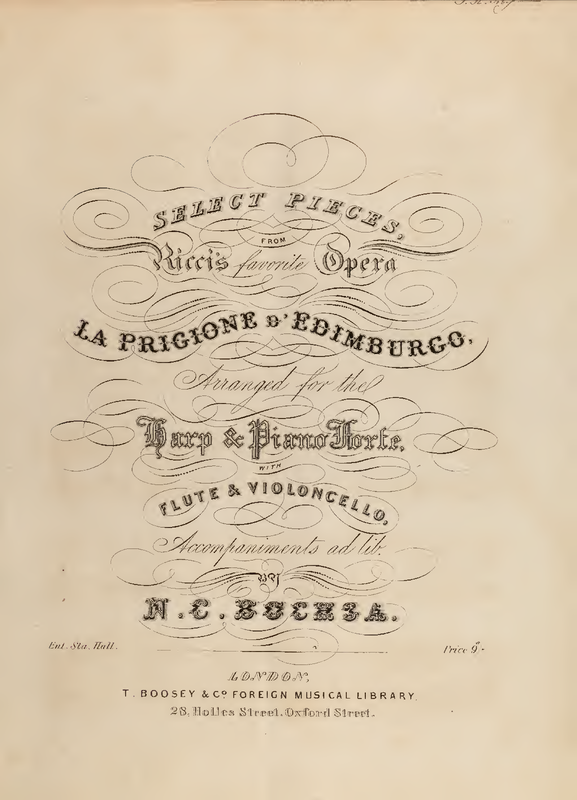 SELECT PIECES,
FROM
Ricci's favorite Opera
LA PRIGIONE D'EDIMBURGO,
Arranged for the
Harp & Piano Forte,
WITH
FLUTE & VIOLONCELLO,
Accompaniments ad lib.
BY
N. C. BOCHSA.
Ent. Sta. Hall.
Price 9/-
LONDON,
T. BOOSEY & Co. FOREIGN MUSICAL LIBRARY,
28, Holles Street, Oxford Street.